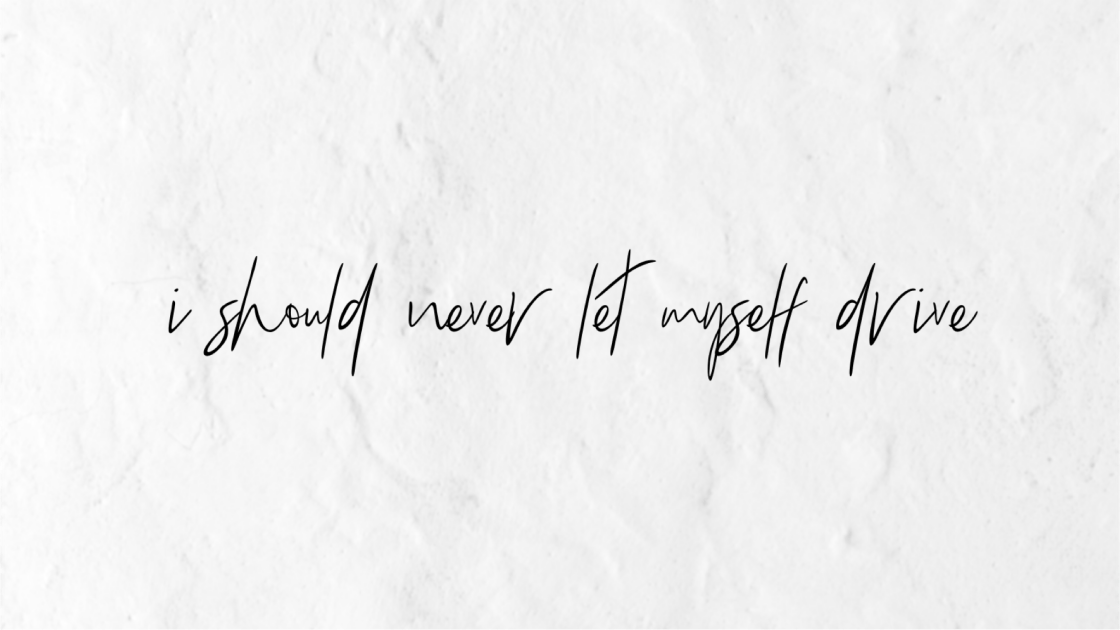 i should never let myself drive